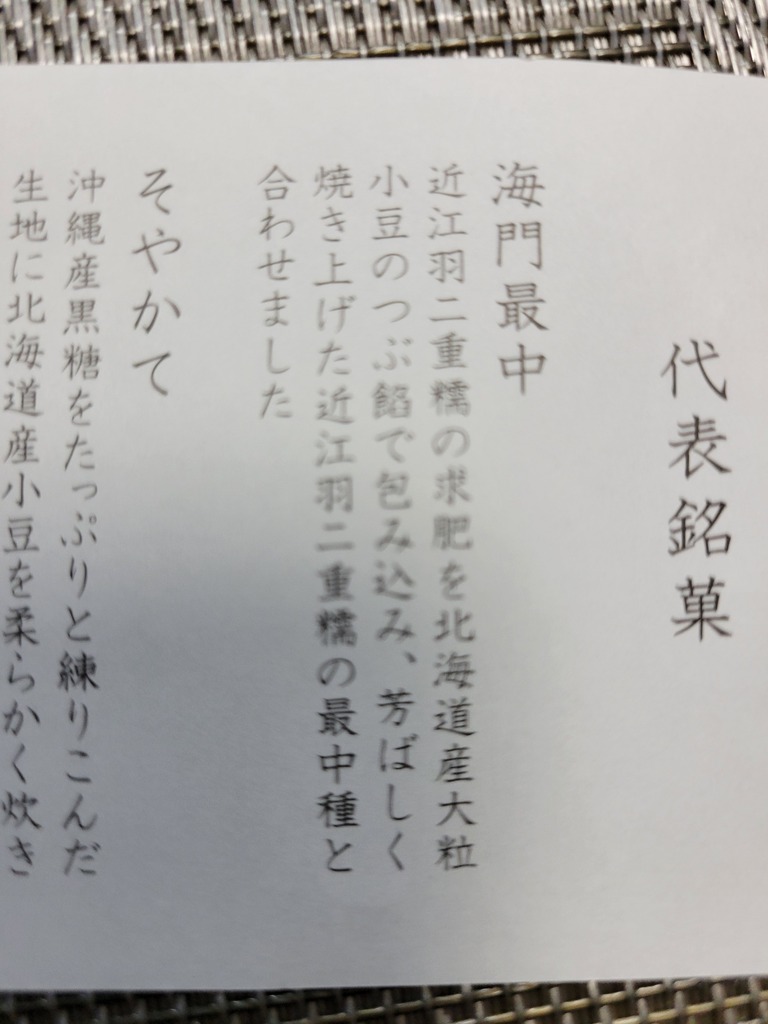 代表銘菓
海門最中
近江羽二重糯の求肥を北海道産大粒
小豆のつぶ餡で包み込み、芳ばしく
焼き上げた近江羽二重糯の最中種と
合わせました
そやかて
沖縄産黒糖をたっぷりと練りこんだ
生地に北海道産小豆を柔らかく炊き